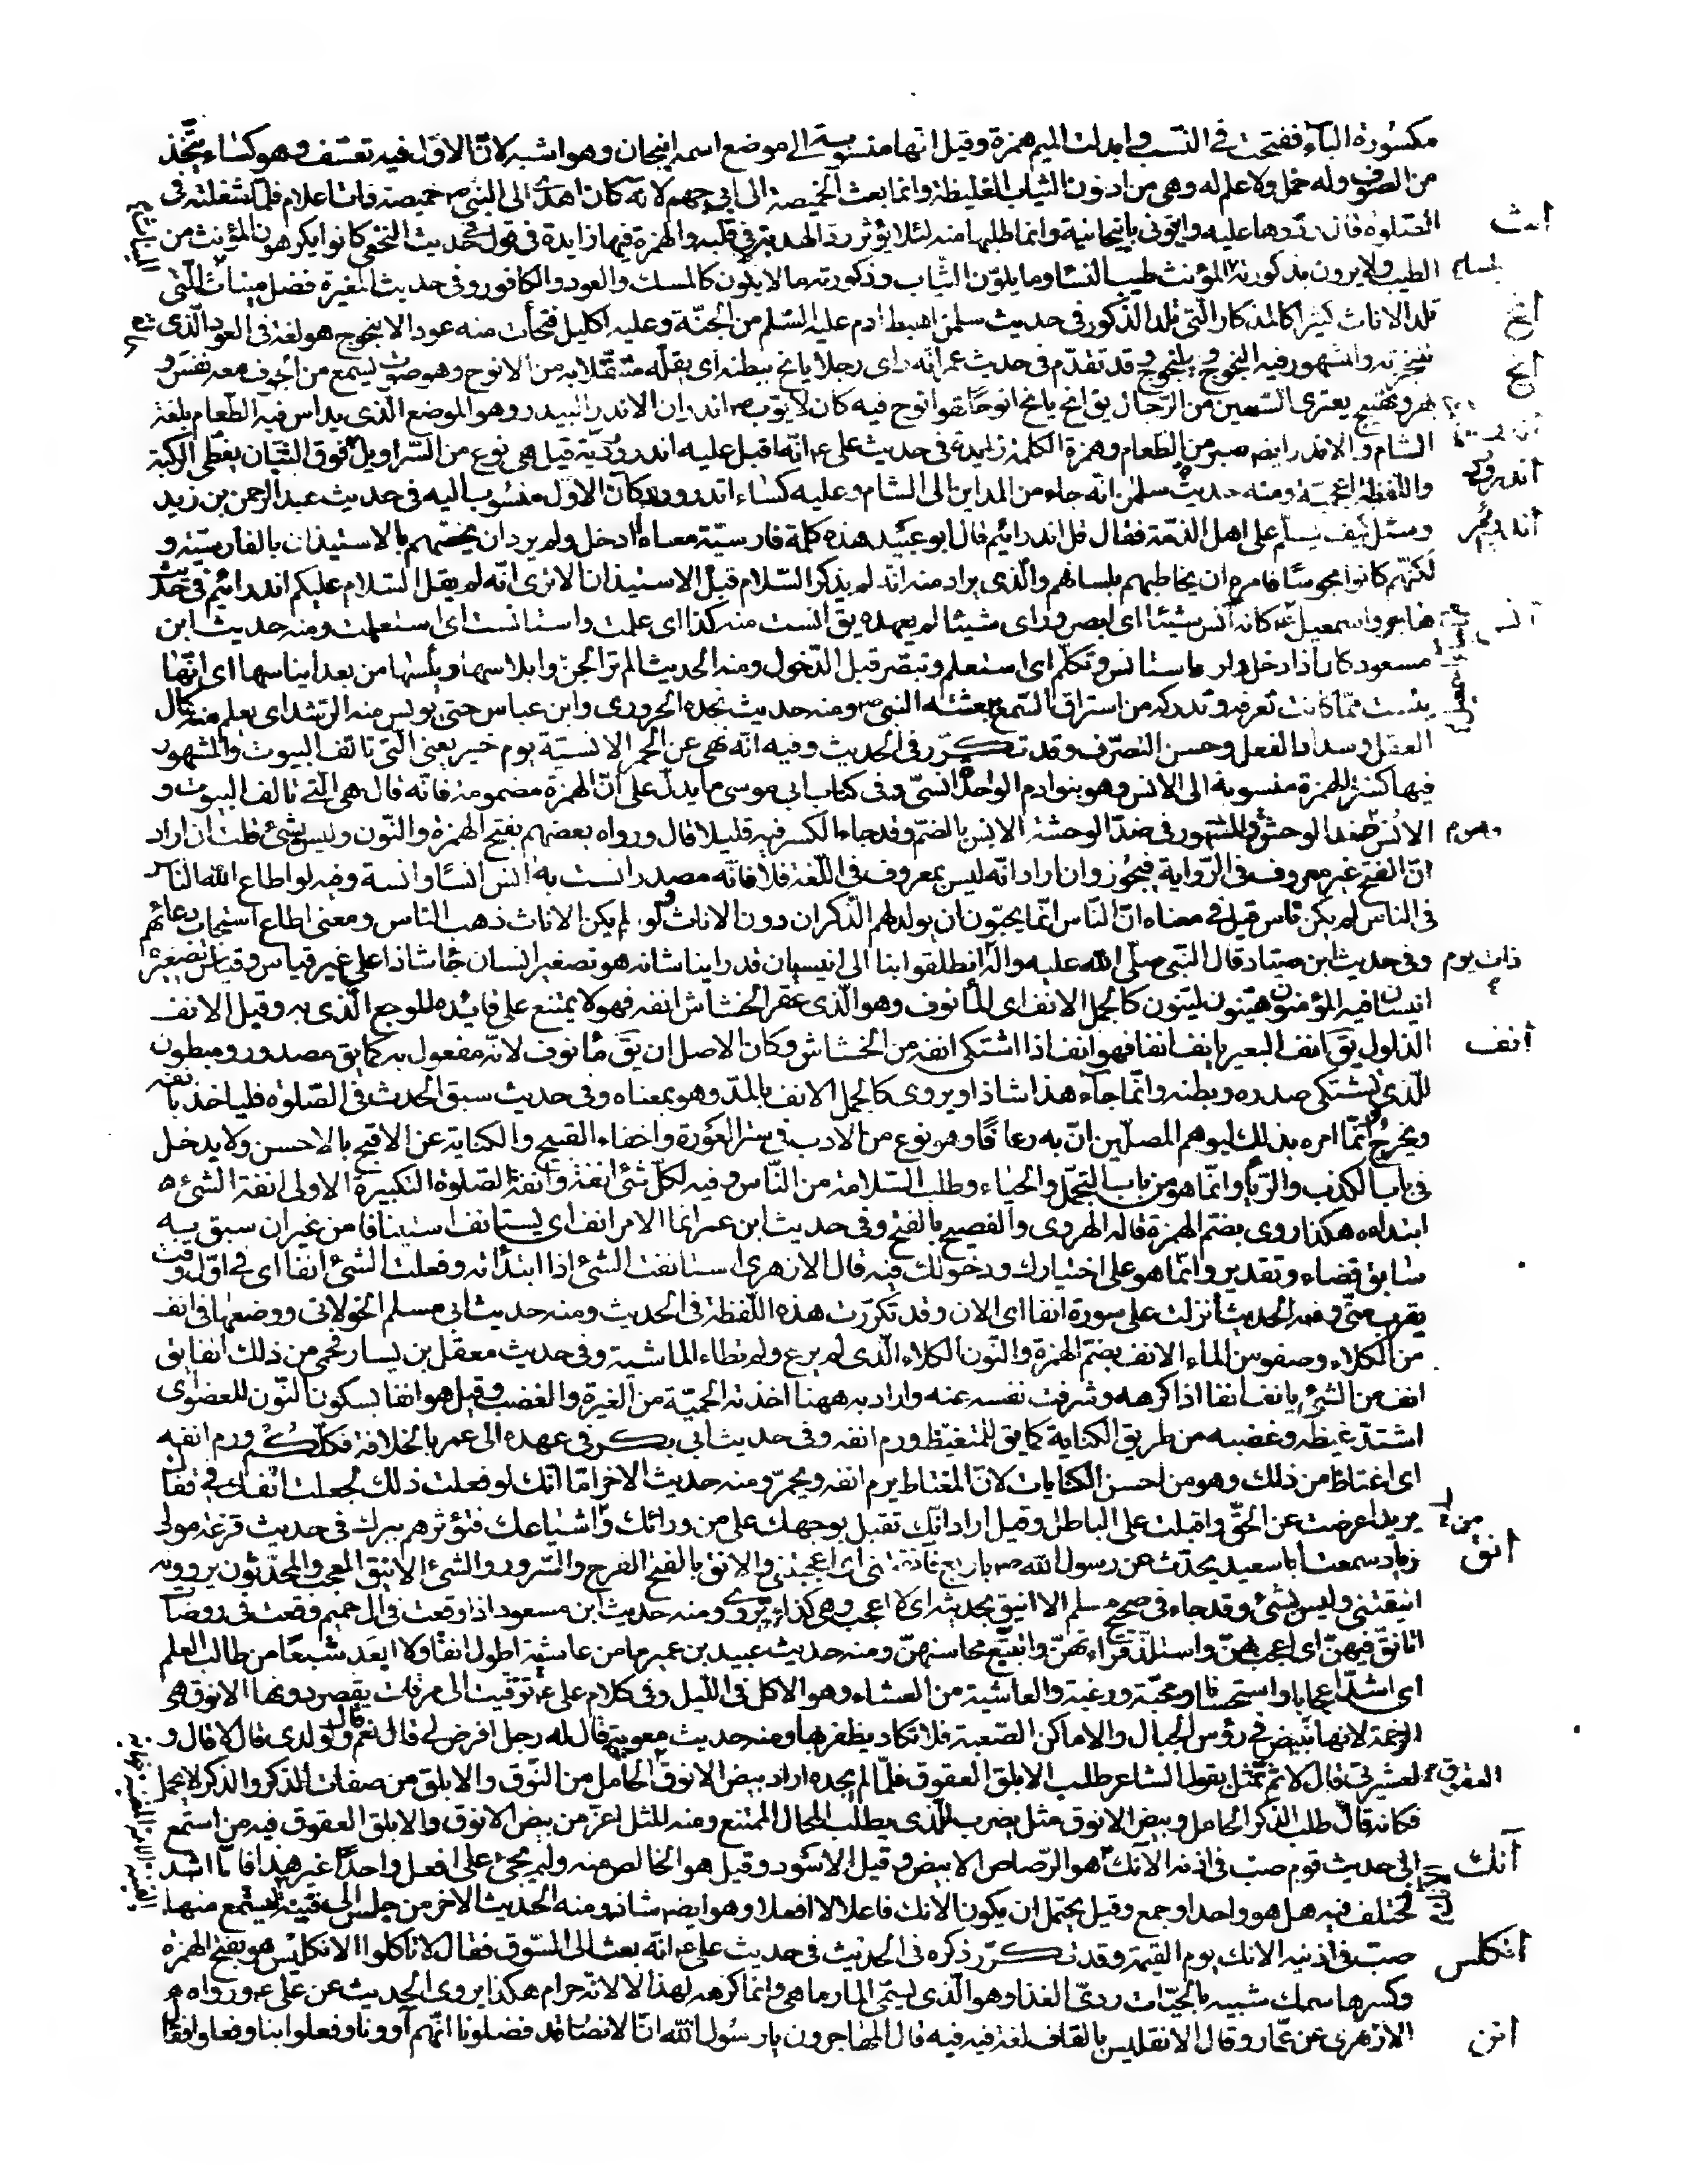 مكسورة الباء ففتحت في النسب وابدلت الميم همزة وقيل انها منسوبة الى موضع اسمه انبجان وهو اشبه لان الاول فيه تعسف وهو كساء يتخذ
من الصوف وله خمل ولا علم له وهي من ادون الثياب الغليظة وانما بعث الخميصة الى ابي جهم لانه كان اهدى الى النبي ص خميصة ذات اعلام فلما شغلته في
انث
الصلوة قال ردوها عليه وايتوني بانبجانية وانما طلبها منه لئلا يؤثر رد الهدية في قلبه والهمزة فيها زايدة في قول في حديث النخعي كانوا يكرهون المؤنث من
الطيب ولا يرون بذكورته المؤنث طيب النساء وما يلون الثياب وذكورته ما لا يلون كالمسك والعود والكافور وفي حديث المغيرة فضل مئناث التي
انج
تلد الاناث كثيرا كالمذكار التي تلد الذكور في حديث سلمن اهبط ادم عليه السلم من الجنة وعليه اكليل فتحات منه عود الانجوج هو لغة في العود الذي
انح
يتبخر به والمشهور فيه النجوج ويلنجوج وقد تقدم في حديث عمر انه راى رجلا يانح ببطنه اى يقله مثقلا به من الانوح وهو صوت يسمع من الجوف معه نفس و
بهر ونهيج يعترى السمين من الرجال يق انح يانح انوحا فهو انوح فيه كان لايوب ص اندران الاندر البيدر وهو الموضع الذى يداس فيه الطعام بلغة
الشام والاندر ايضه صبر من الطعام وهمزة الكلمة زايدة في حديث على ع انه اقبل عليه اندروردية قيل هى نوع من السراويل فوق التبان يغطى الركبة
اندرورد
واللفظة اعجمية ومنه حديث سلمن انه جاء من المداين الى الشام وعليه كساء اندرورد كان الاول منسوب اليه في حديث عبد الرحمن بن زيد
اندرايم
وسئل كيف يسلم على اهل الذمة فقال قل اندرائيم قال ابو عبيد هذه كلمة فارسية معناه ادخل ولم يرد ان يخصهم بالاستيذان بالفارسية و
لكنهم كانوا مجوسا فامره ان يخاطبهم بلسانهم والذى يراد منه انه لم يذكر السلام قبل الاستيذان الا ترى انه لم يقل السلام عليكم اندرائيم في حديث
انس
هاجر واسمعيل ع كانه آنس شيئا اى ابصر وراى شيئا لم يعهده يق انست منه كذا اى علمت واستانست اى استعلمت ومنه حديث ابن
مسعود كان اذا دخل داره استانس وتكلم اى استعلم وتبصر قبل الدخول ومنه الحديث الم تر الجن وابلاسها ويأسها من بعد ايناسها اى انها
يئست مما كانت تعرفه وتدركه من استراق السمع ببعثه النبى ص ومنه حديث نجدة الحرورى وابن عباس حتى يونس منه الرشد اى يعلم منه كمال
العقل وسداد الفعل وحسن التصرف وقد تكرر في الحديث وفيه انه نهى عن الحمر الانسية يوم خيبر يعنى التى تالف البيوت والمشهور
فيها كسر الهمزة منسوبة الى الانس وهو بنو ادم الواحد انسى وفى كتاب ابى موسى ما يدل على ان الهمزة مضمومة فانه قال هى التى تالف البيوت و
الانس ضد الوحش والمشهور فى ضد الوحشة الانس بالضم وقد جاء الكسر فيه قليلا قال ورواه بعضهم بفتح الهمزة والنون وليس بشئ قلت ان اراد
ان الفتح غير معروف فى الرواية فيجوز وان اراد انه ليس بمعروف في اللغة فلا فانه مصدر انست به انس انسا وانسة وفيه لو اطاع الله الناس
فى الناس لم يكن ناس قيل في معناه ان الناس انما يحبون ان يولد لهم الذكران دون الاناث ولو لم يكن الاناث ذهب الناس ومعنى اطاع استجاب دعائهم
ذات يوم
وفى حديث ابن صياد قال النبى صلى الله عليه واله انطلقوا بنا الى انيسيان قد راينا شانه هو تصغير انسان جاء شاذا على غير قياس وقياس تصغيره
انيسان فيه المؤمنون هينون لينون كالجمل الانف اى المأنوف وهو الذى عقر الخشاش انفه فهو لا يمتنع على قائده للوجع الذى به وقيل الانف
انف
الذلول يق انف البعير يانف انفا فهو انف اذا اشتكى انفه من الخشاش وكان الاصل ان يق مأنوف لانه مفعول به كما يق مصدور ومبطون
للذى يشتكى صدره وبطنه وانما جاء هذا شاذا ويروى كالجمل الانف بالمد وهو بمعناه وفى حديث سبق الحدث فى الصلوة فلياخذ بانفه
ويخرج انما امره بذلك ليوهم المصلين ان به رعافا وهو نوع من الادب في ستر العورة واخفاء القبيح والكناية عن الاقبح بالاحسن ولا يدخل
فى باب الكذب والريا وانما هو من باب التجمل والحياء وطلب السلامة من الناس وفيه لكل شئ انفة وانفة الصلوة التكبيرة الاولى انفة الشئ
ابتداؤه هكذا روى بضم الهمزة قاله الهروى والفصيح بالفتح وفى حديث ابن عمر انما الامر انف اى يستانف استينافا من غير ان سبق به
سابق قضاء وتقدير وانما هو على اختيارك ودخولك فيه قال الازهرى استانفت الشئ اذا ابتدأته وفعلت الشئ انفا اى في اول وقت
يقرب منى ومنه الحديث انزلت على سورة انفا اى الان وقد تكررت هذه اللفظة فى الحديث ومنه حديث ابى مسلم الخولانى ووضعها فى انف
من الكلاء وصفو من الماء الانف بضم الهمزة والنون الكلاء الذى لم يرع ولم تطاه الماشية وفى حديث معقل بن يسار فحمى من ذلك انفا يق
انف من الشئ يانف انفا اذا كرهه وشرفت نفسه عنه واراد به ههنا اخذته الحمية من الغيرة والغضب وقيل هو انفا بسكون النون للعضو اى
اشتد غيظه وغضبه من طريق الكناية كما يق للمتغيظ ورم انفه وفى حديث ابى بكر فى عهده الى عمر بالخلافة فكلكم ورم انفه
اى اغتاظ من ذلك وهو من احسن الكنايات لان المغتاظ يرم انفه ويحمر ومنه حديث الاخر اما انك لو فعلت ذلك لجعلت انفك في قفاك
يريد اعرضت عن الحق واقبلت على الباطل وقيل اراد انك تقبل بوجهك على من ورائك واشياعك فتؤثرهم ببرك فى حديث قزعة مولى
انق
زياد سمعت ابا سعيد يحدث عن رسول الله ص باربع فآنقننى اى اعجبننى والانق بالفتح الفرح والسرور والشئ الانيق المعجب والمحدثون يروونه
اينقننى وليس بشئ وقد جاء فى صحيح مسلم لا اينق بحديثه اى لا اعجب وهى كذا تروى ومنه حديث ابن مسعود اذا وقعت فى ال حميم وقعت فى روضات
اتانق فيهن اى اعجب بهن واستلذ قراءتهن واتتبع محاسنهن ومنه حديث عبيد بن عمير ما من عاشية اطول انقا ولا ابعد شبعا من طالب العلم
اى اشد اعجابا واستحسانا ومحبة ورغبة والعاشية من العشاء وهو الاكل فى الليل وفى كلام على ع ترقيت الى مرقات يقصر دونها الانوق هى
الرخمة لانها تبيض فى رؤس الجبال والاماكن الصعبة فلا تكاد يظفر بها ومنه حديث معوية قال له رجل افرض لى قال نعم قال ولولدى قال لا قال و
لعشيرتى قال لا ثم تمثل بقول الشاعر طلب الابلق العقوق فلما لم يجده اراد بيض الانوق الحامل من النوق والابلق من صفات الذكر والذكر لا يحمل
فكانه قال طلب الذكر الحامل وبيض الانوق مثل يضرب للذى يطلب المحال الممتنع ومنه المثل اعز من بيض الانوق والابلق العقوق فيه من استمع
آنك
الى حديث قوم صب فى اذنه الآنك هو الرصاص الابيض وقيل الاسود وقيل هو الخالص منه ولم يجئ على افعل واحدا غير هذا فاما اشد
فمختلف فيه هل هو واحد او جمع وقيل يحتمل ان يكون الانك فاعلا لا افعلا وهو ايضه شاذ ومنه الحديث الاخر من جلس الى قينة ليستمع منها
صب فى اذنيه الانك يوم القيمة وقد تكرر ذكره فى الحديث فى حديث على ع انه بعث الى السوق فقال لا تاكلوا الانكليس هو بفتح الهمزة
انكلس
وكسرها سمك شبيه بالحيات ردى الغذا وهو الذى يسمى المارماهى وانما كرهه لهذا لا لانه حرام هكذا يروى الحديث عن على ع ورواه
انن
الازهرى عن عمار وقال الانقليس بالقاف لغة فيه فيه قال المهاجرون يا رسول الله ان الانصار قد فضلونا انهم آوونا وفعلوا بنا وفعلوا فقال